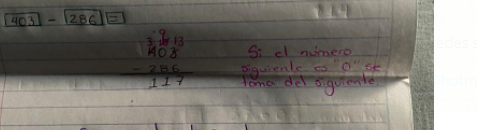 403 - 286 =
9
3 10 13
403
- 286
117
Si el número
siguiente es "0" se
toma del siguiente